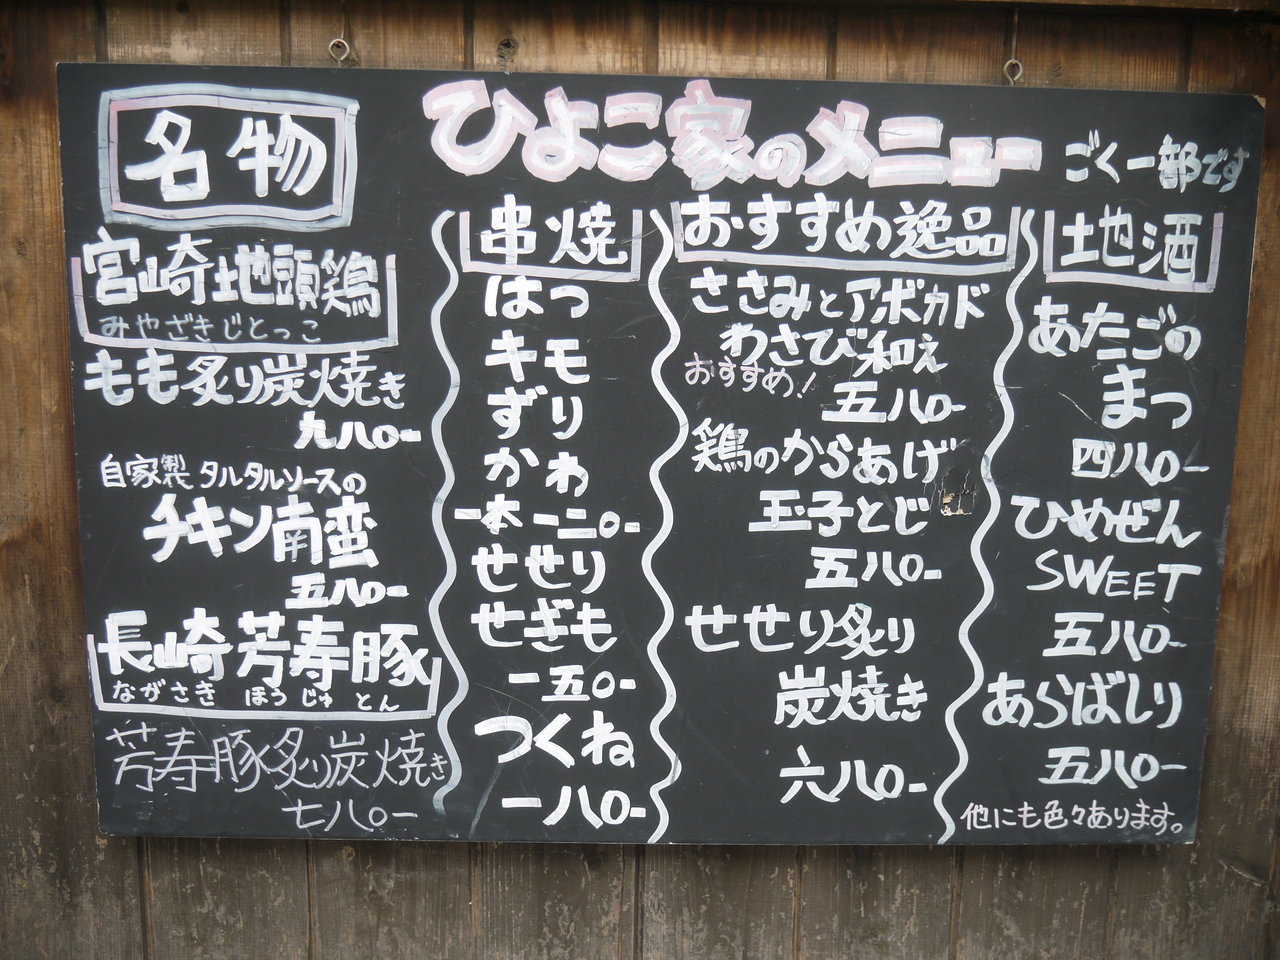 ひよこ家のメニュー
ごく一部です
名物
宮崎地頭鶏
みやざきじとっこ
もも炙り炭焼き
九八〇-
自家製タルタルソースの
チキン南蛮
五八〇-
長崎芳寿豚
ながさき ほうじゅとん
芳寿豚炙り炭焼き
七八〇-
串焼
はつ
キモ
ずり
かわ
一本一二〇-
せせり
せぎも
一五〇-
つくね
一八〇-
おすすめ逸品
ささみとアボカド
わさび和え
おすすめ!
五八〇-
鶏のからあげ
玉子とじ
五八〇-
せせり炙り
炭焼き
六八〇-
地酒
あたごの
まつ
四八〇-
ひめぜん
SWEET
五八〇-
あらばしり
五八〇-
他にも色々あります。